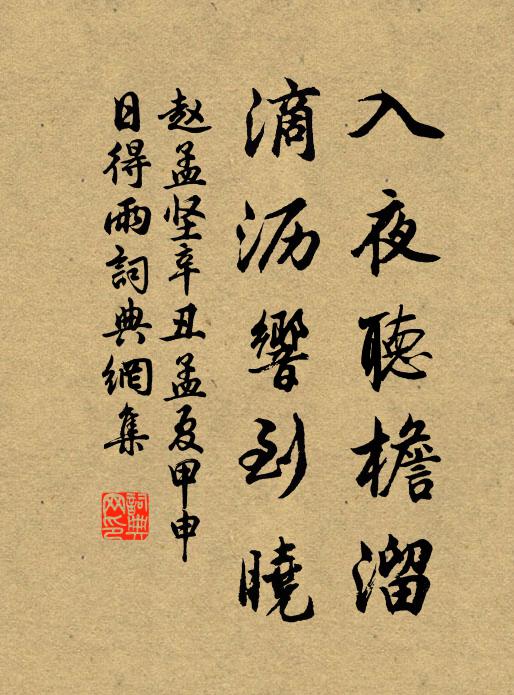 入夜聽檐溜
滴沥響到曉
赵孟坚辛丑孟夏甲申
日得雨詞典網集
詞典
网印